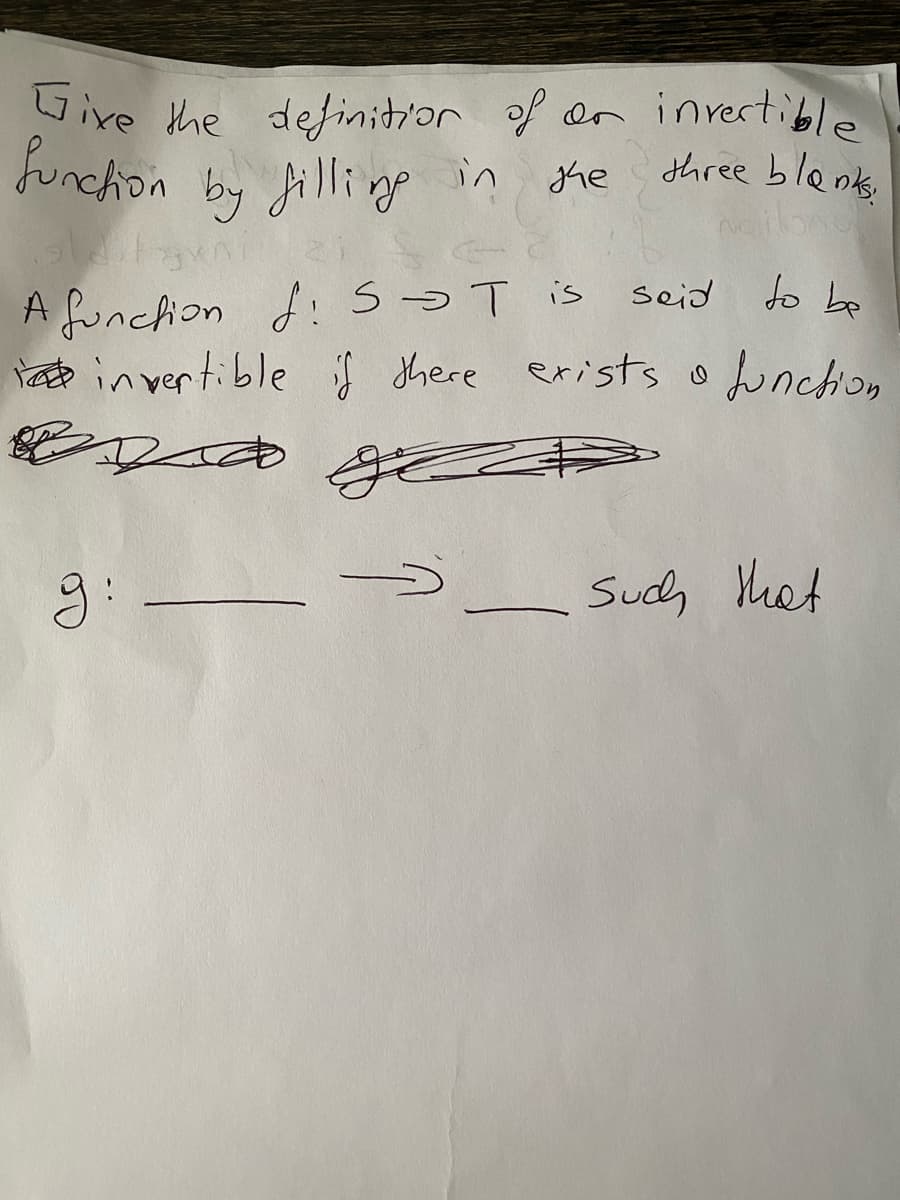 Give the definition of an invertible
function by filling in the three blanks.
A function f: S → T is said to be
invertible if there exists a function
g: ___ → ___ such that